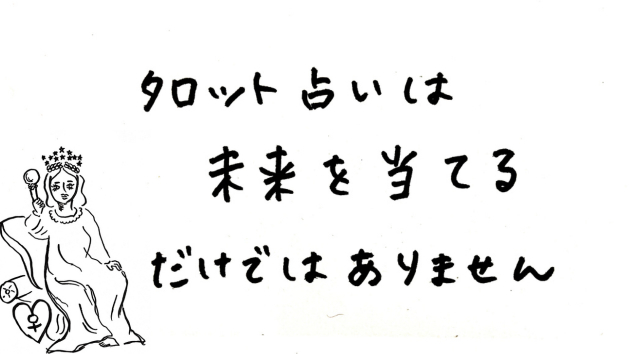 タロット占いは
未来を当てる
だけではありません